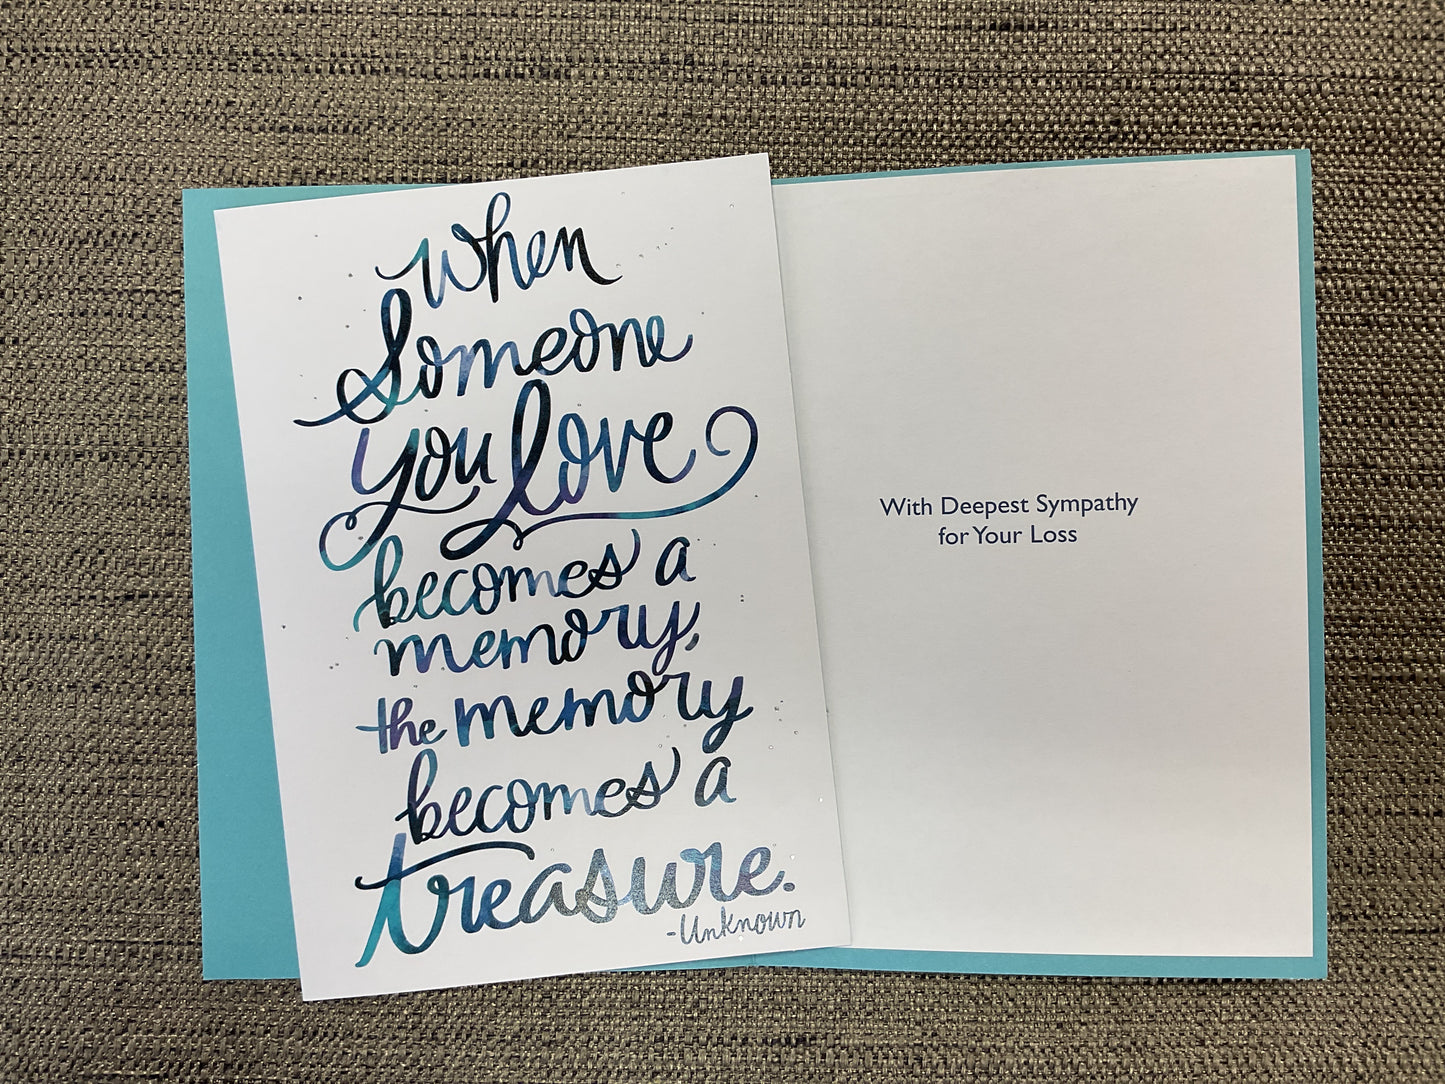 When
Someone
you love
becomes a
memory,
the memory
becomes a
treasure.
-Unknown
With Deepest Sympathy
for Your Loss